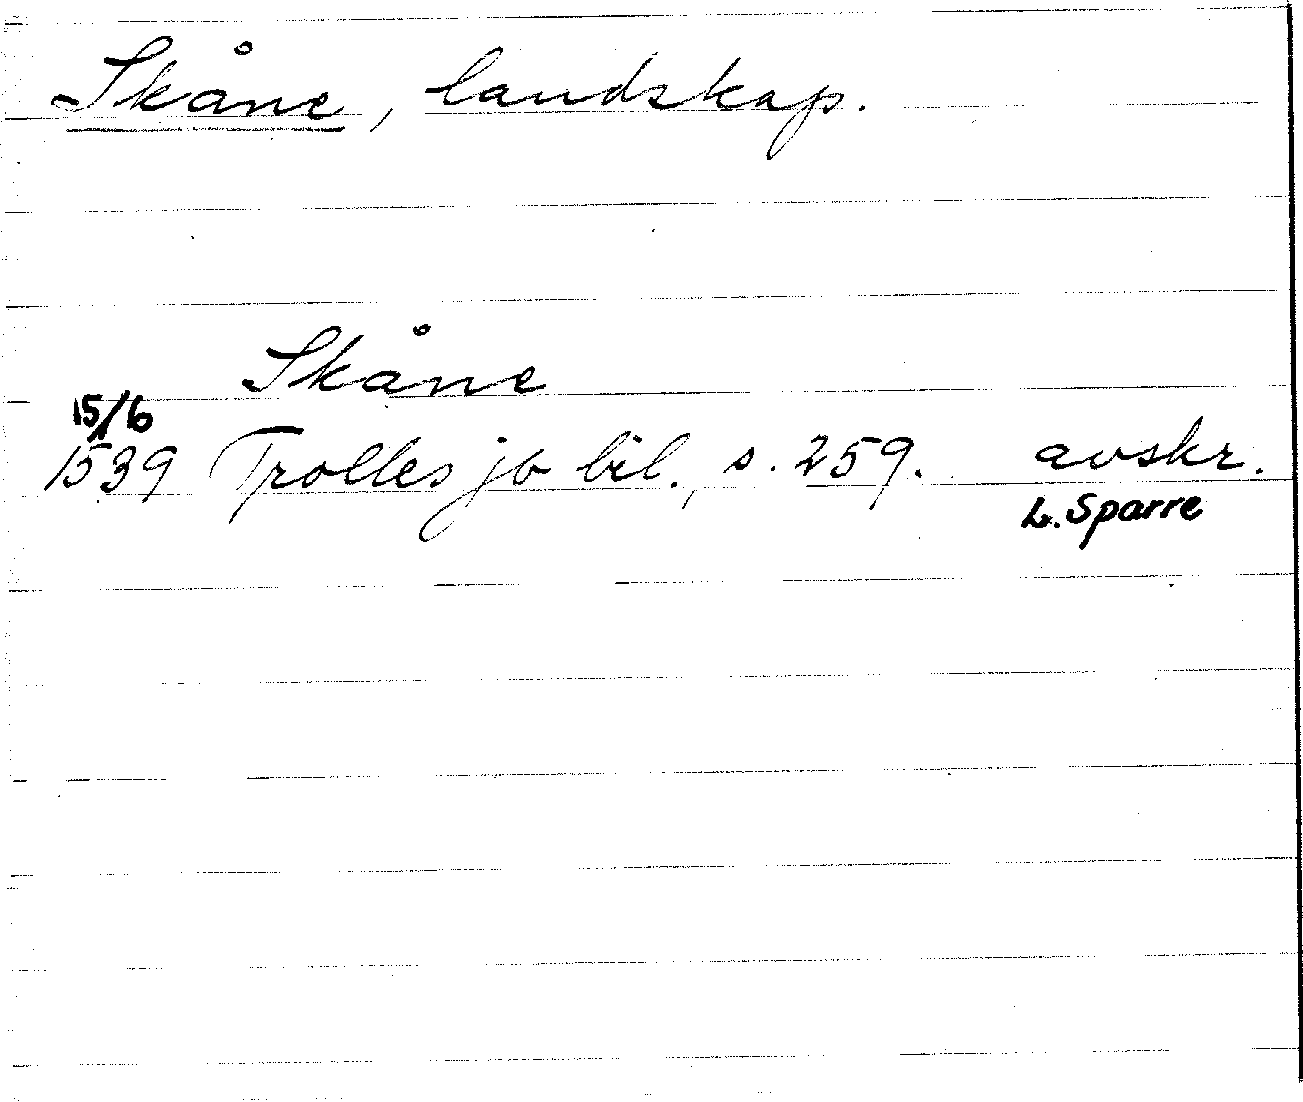 Skåne, landskap.
Skåne
15/6
1539 Trolles jb bil., s. 259. avskr.
L. Sparre